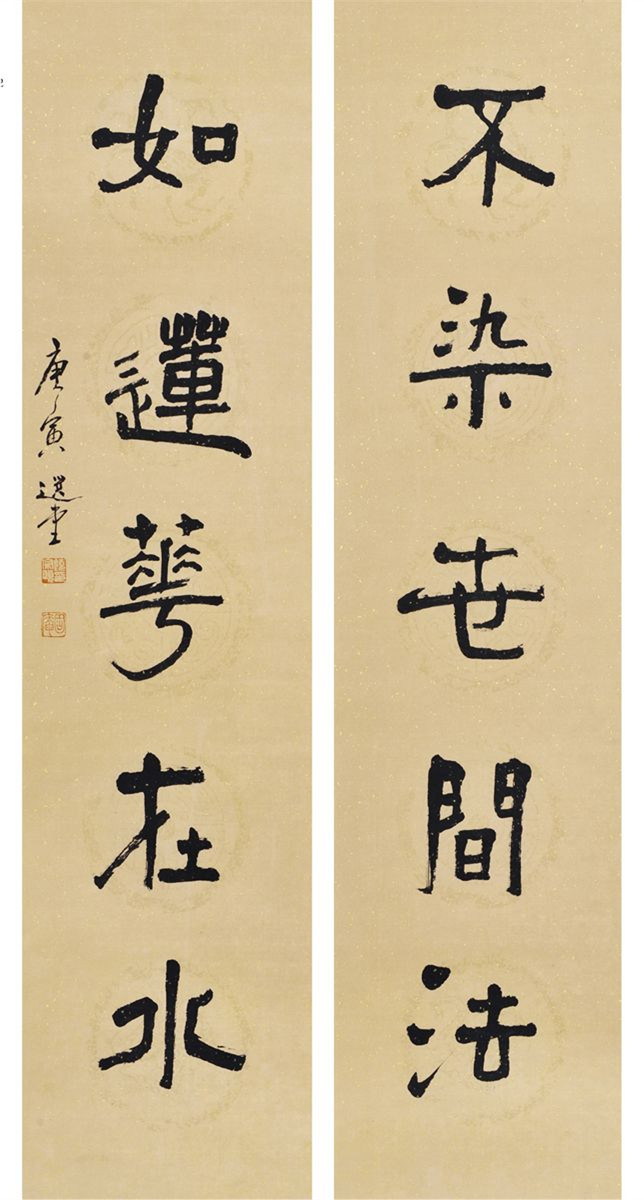 不染世間法
如蓮華在水
庚寅 選堂